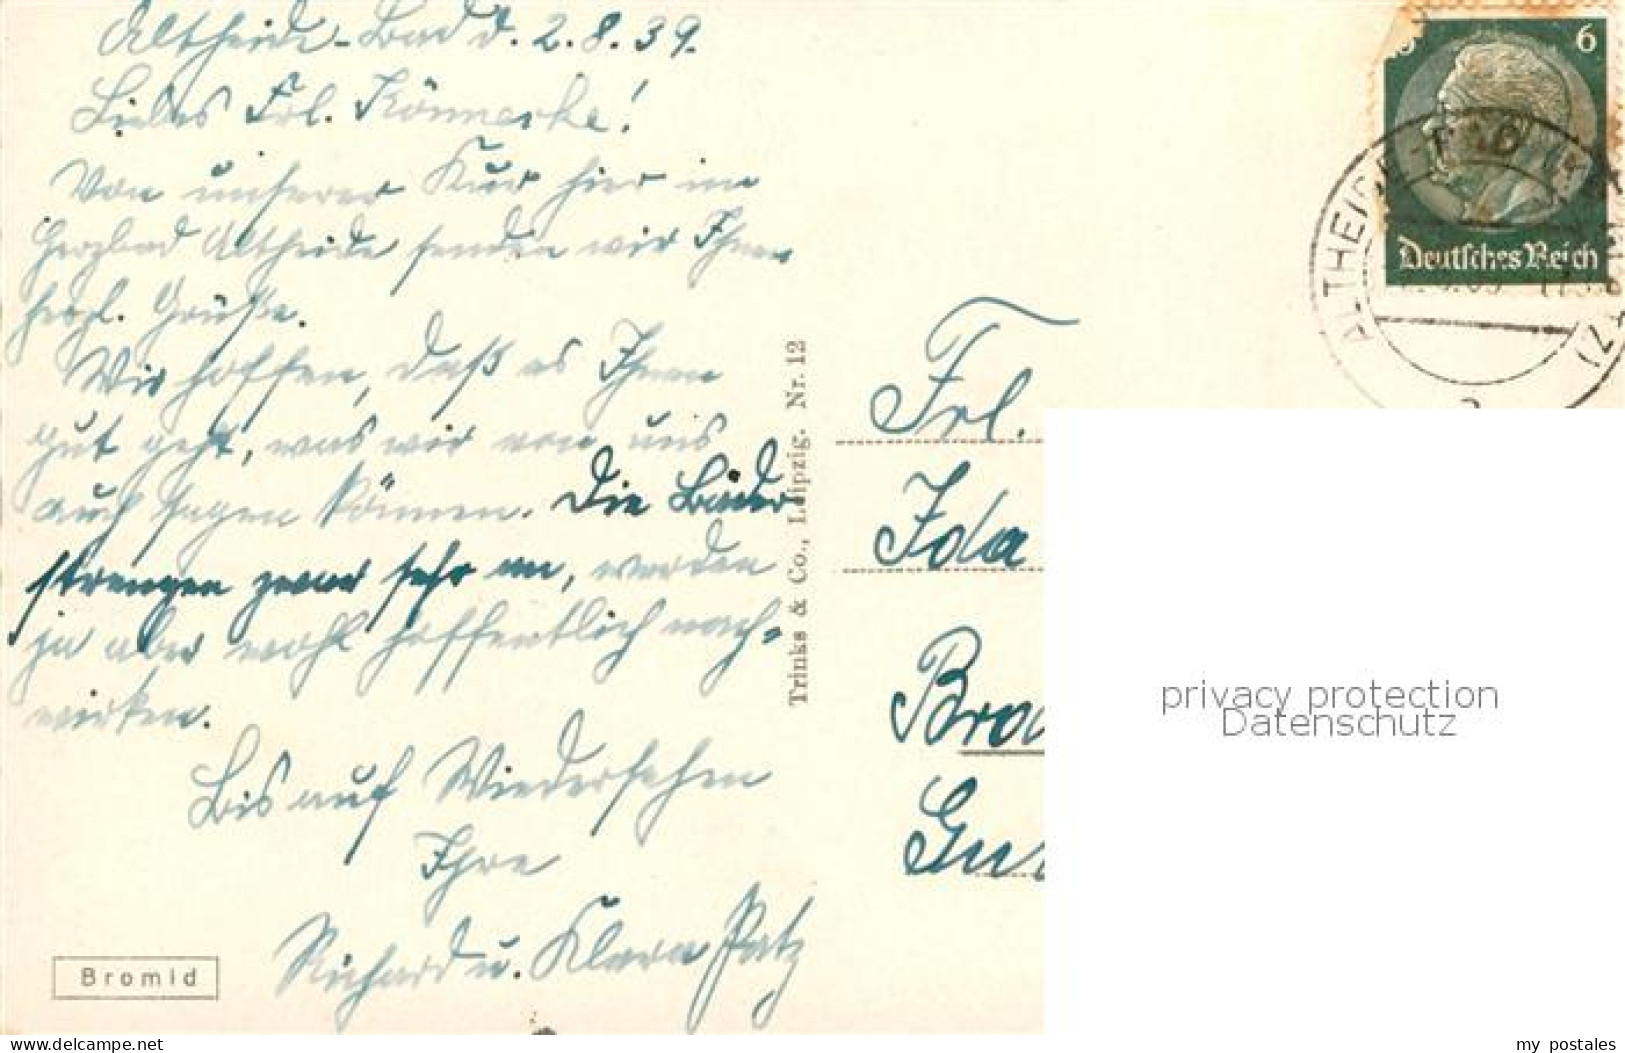 Altheide-Bad d. 2.8.39.
Liebes Frl. Könnecke!
Von unserer Kur hier im
Herzbad Altheide senden wir Ihnen
herzl. Grüße.
Wir hoffen, daß es Ihnen
gut geht, was wir von uns
auch sagen können. Die Bäder
strengen zwar sehr an, werden
ja aber wohl hoffentlich nach-
wirken.
Bis auf Wiedersehen
Ihre
Richard u. Klara Patz
Bromid
Trinks & Co., Leipzig. Nr. 12
6
Deutsches Reich
ALTHEIDE-BAD
Frl.
Ida
Bra
Gu
privacy protection
Datenschutz
Delcampe.net
my_postales